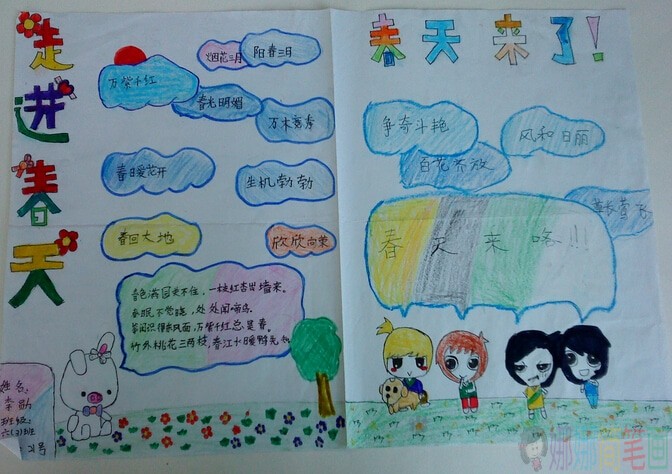 走进春天
春天来了!
烟花三月
阳春三月
万紫千红
春光明媚
万木争春
春日暖花开
生机勃勃
春回大地
欣欣向荣
争奇斗艳
风和日丽
百花齐放
莺长莺飞
春天来咯!!!
春色满园关不住,一枝红杏出墙来。
春眠不觉晓,处处闻啼鸟。
等闲识得东风面,万紫千红总是春。
竹外桃花三两枝,春江水暖鸭先知
姓名:
李勋
班级:
六(2)班
21号
娜娜简笔画